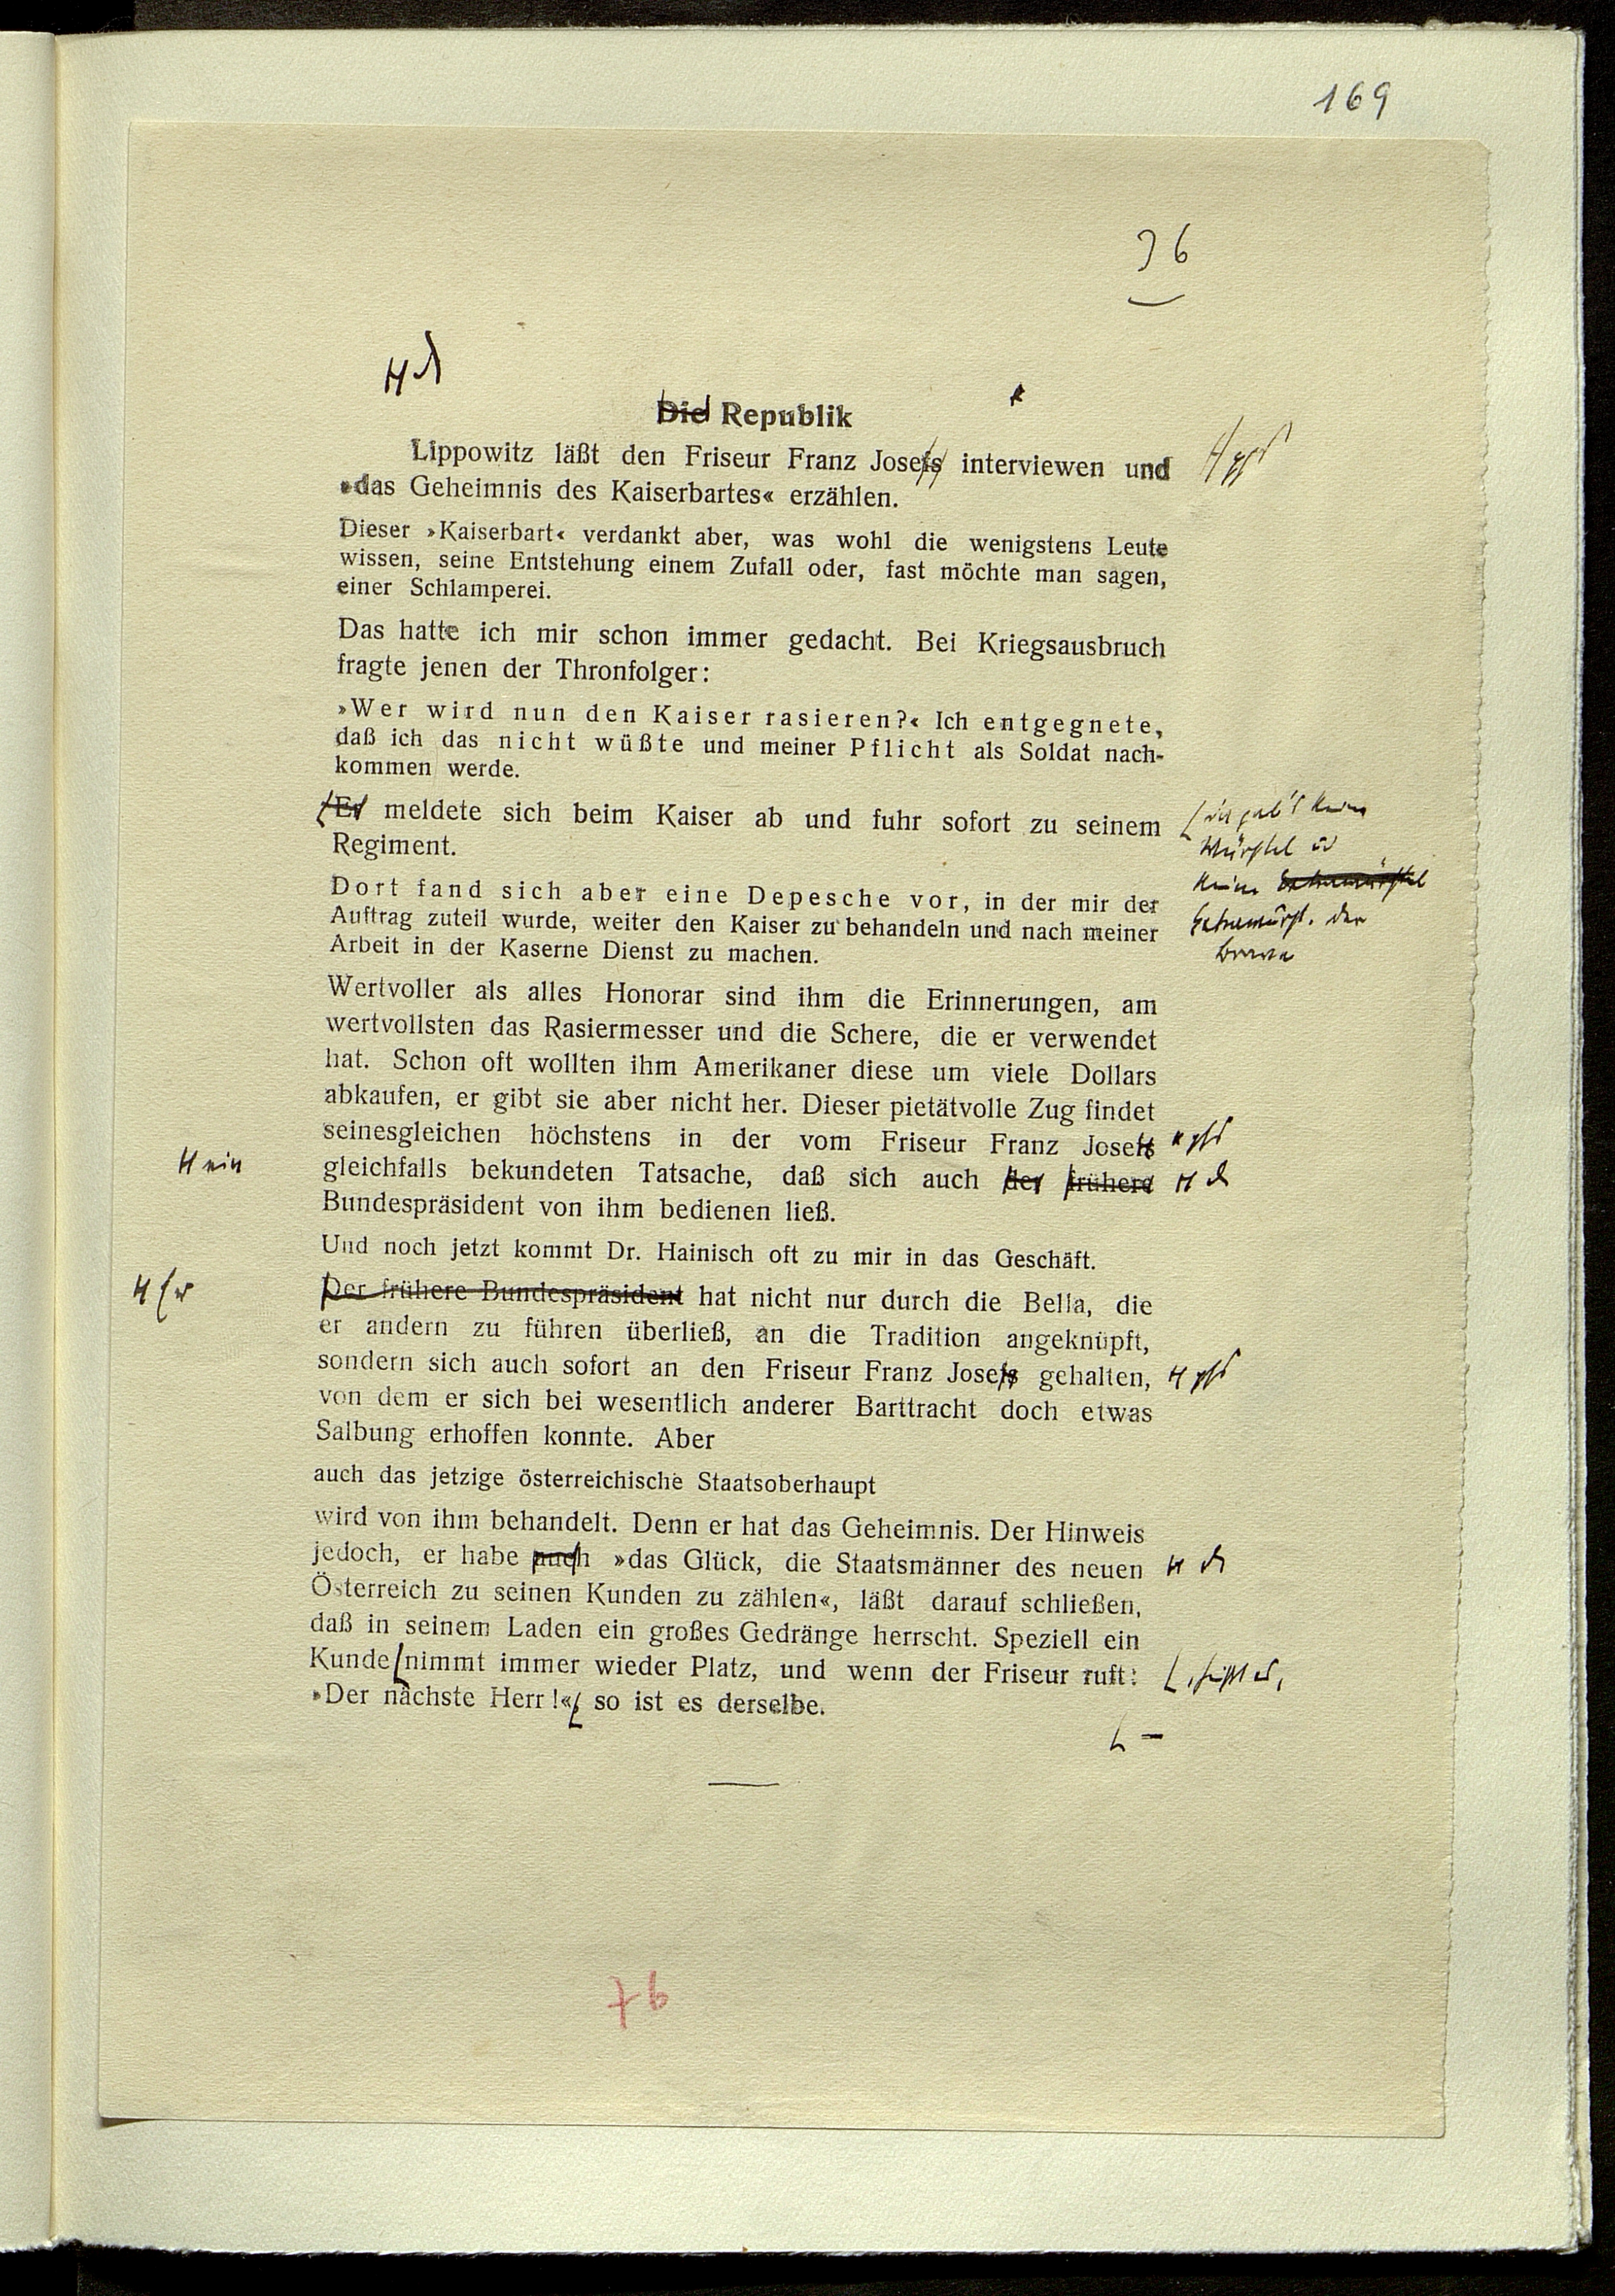 169
36
Die Republik
Lippowitz läßt den Friseur Franz Josefs interviewen und
»das Geheimnis des Kaiserbartes« erzählen.
Dieser »Kaiserbart« verdankt aber, was wohl die wenigstens Leute
wissen, seine Entstehung einem Zufall oder, fast möchte man sagen,
einer Schlamperei.
Das hatte ich mir schon immer gedacht. Bei Kriegsausbruch
fragte jenen der Thronfolger:
»Wer wird nun den Kaiser rasieren?« Ich entgegnete,
daß ich das nicht wüßte und meiner Pflicht als Soldat nach-
kommen werde.
Er meldete sich beim Kaiser ab und fuhr sofort zu seinem
Regiment.
Würstel
keine
Dort fand sich aber eine Depesche vor, in der mir der
Auftrag zuteil wurde, weiter den Kaiser zu behandeln und nach meiner
Arbeit in der Kaserne Dienst zu machen.
Wertvoller als alles Honorar sind ihm die Erinnerungen, am
wertvollsten das Rasiermesser und die Schere, die er verwendet
hat. Schon oft wollten ihm Amerikaner diese um viele Dollars
abkaufen, er gibt sie aber nicht her. Dieser pietätvolle Zug findet
seinesgleichen höchstens in der vom Friseur Franz Josefs
ein
gleichfalls bekundeten Tatsache, daß sich auch der frühere
Bundespräsident von ihm bedienen ließ.
Und noch jetzt kommt Dr. Hainisch oft zu mir in das Geschäft.
Der frühere Bundespräsident hat nicht nur durch die Bella, die
er andern zu führen überließ, an die Tradition angeknüpft,
sondern sich auch sofort an den Friseur Franz Josefs gehalten,
von dem er sich bei wesentlich anderer Barttracht doch etwas
Salbung erhoffen konnte. Aber
auch das jetzige österreichische Staatsoberhaupt
wird von ihm behandelt. Denn er hat das Geheimnis. Der Hinweis
jedoch, er habe auch »das Glück, die Staatsmänner des neuen
Österreich zu seinen Kunden zu zählen«, läßt darauf schließen,
daß in seinem Laden ein großes Gedränge herrscht. Speziell ein
Kunde nimmt immer wieder Platz, und wenn der Friseur ruft:
»Der nächste Herr!« so ist es derselbe.
76